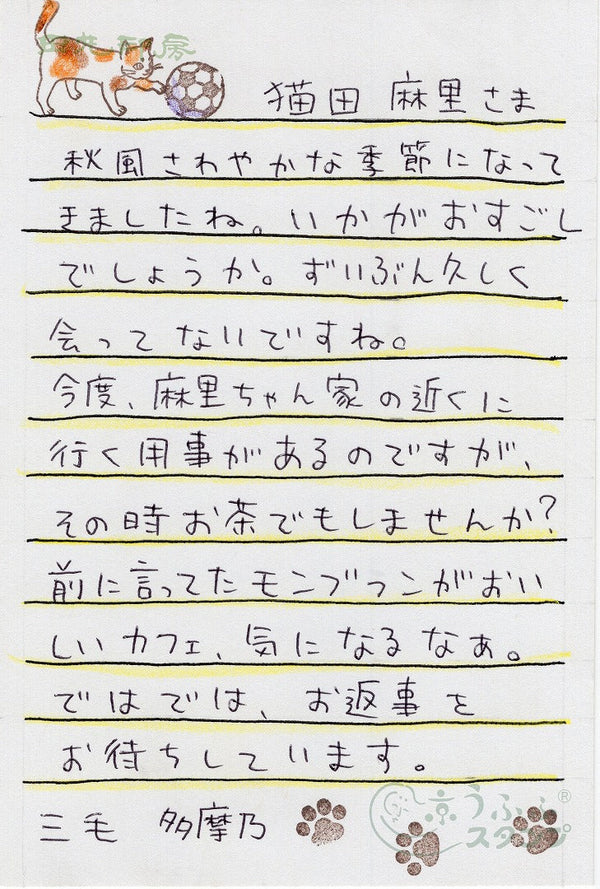 猫田 麻里さま
秋風さわやかな季節になって
きましたね。いかがおすごし
でしょうか。ずいぶん久しく
会ってないですね。
今度、麻里ちゃん家の近くに
行く用事があるのですが、
その時お茶でもしませんか?
前に言ってたモンブランがおい
しいカフェ、気になるなぁ。
ではでは、お返事を
お待ちしています。
三毛 多摩乃
京うふふ®
スタンプ